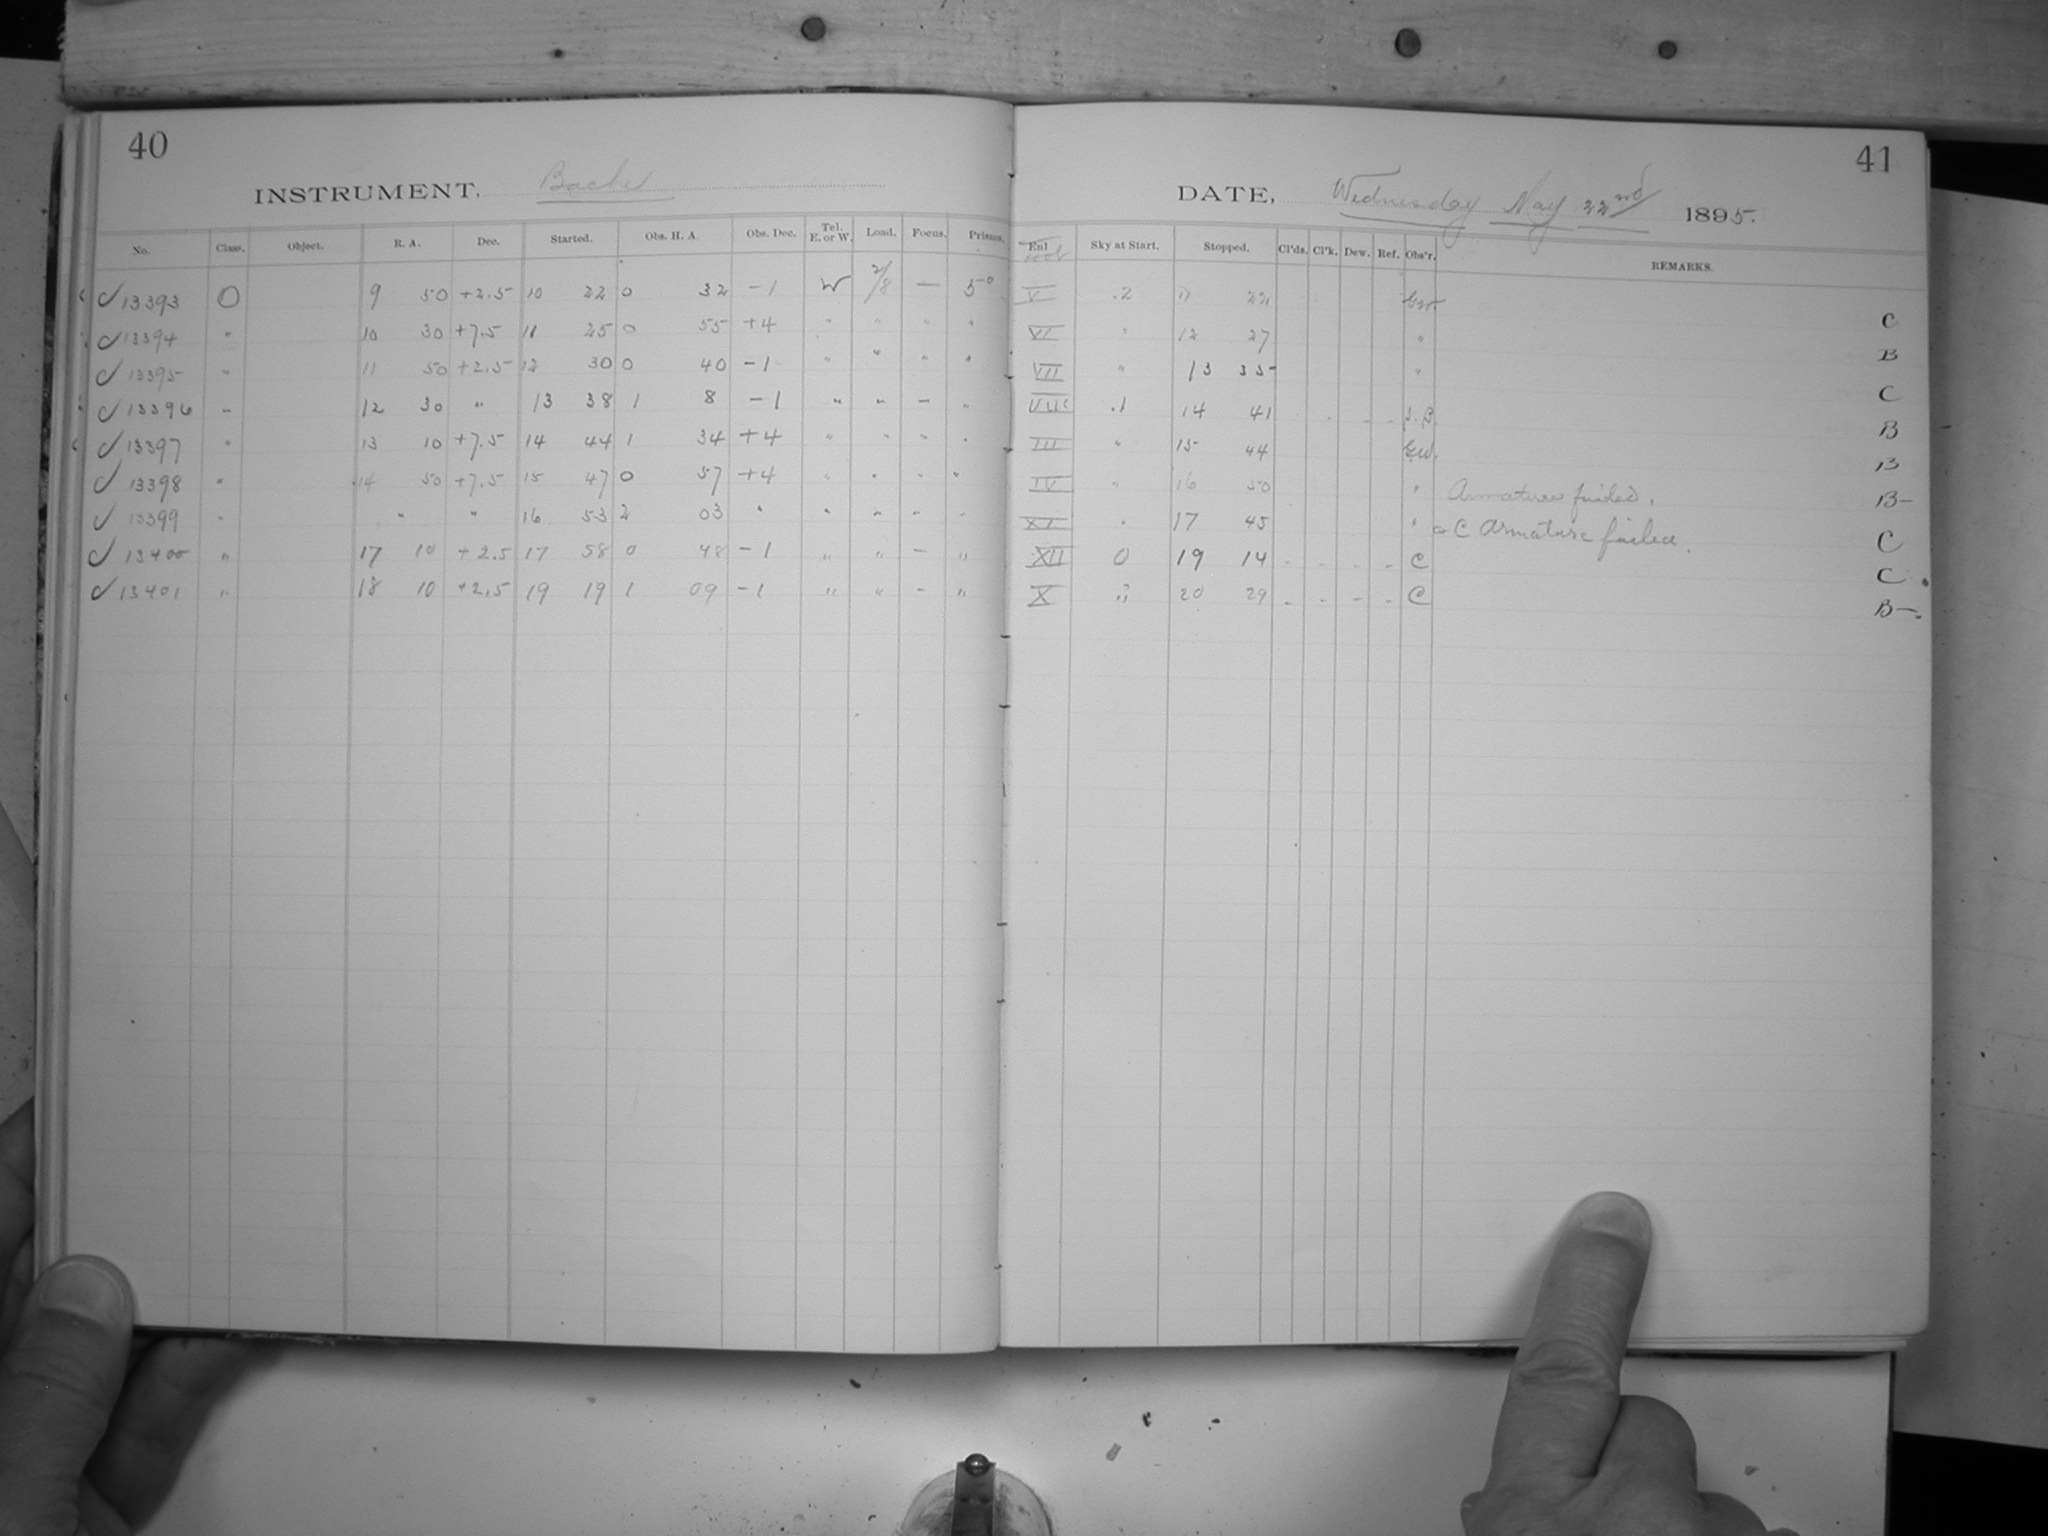 40
INSTRUMENT, Bache
No. Class. Object. R. A. Dec. Started. Obs. H. A. Obs. Dec. Tel. E. or W. Load. Focus. Prisms.
✓ 13393 O 9 50 +2.5 10 22 0 32 -1 W 2/8 — 50
✓ 13394 " 10 30 +7.5 11 25 0 55 +4 " " " "
✓ 13395 " 11 50 +2.5 12 30 0 40 -1 " " " "
✓ 13396 " 12 30 " 13 38 1 8 -1 " " - "
✓ 13397 " 13 10 +7.5 14 44 1 34 +4 " " " "
✓ 13398 " 14 50 +7.5 15 47 0 57 +4 " " " "
✓ 13399 " " " 16 53 2 03 " " " " "
✓ 13400 " 17 10 +2.5 17 58 0 48 -1 " " - "
✓ 13401 " 18 10 +2.5 19 19 1 09 -1 " " - "
41
DATE, Wednesday May 22nd 1895.
Sky at Start. Stopped. Cl'ds. Cl'k. Dew. Ref. Obs'r. REMARKS.
V .2 11 22 C
VI " 12 27 " B
VII " 13 35 " C
VIII .1 14 41 - - B
III " 15 44 B
IV " 16 50 " Armature failed. B-
XI " 17 45 " C Armature failed. C
XII 0 19 14 - - - - C C
X " 20 29 - - - - C B-